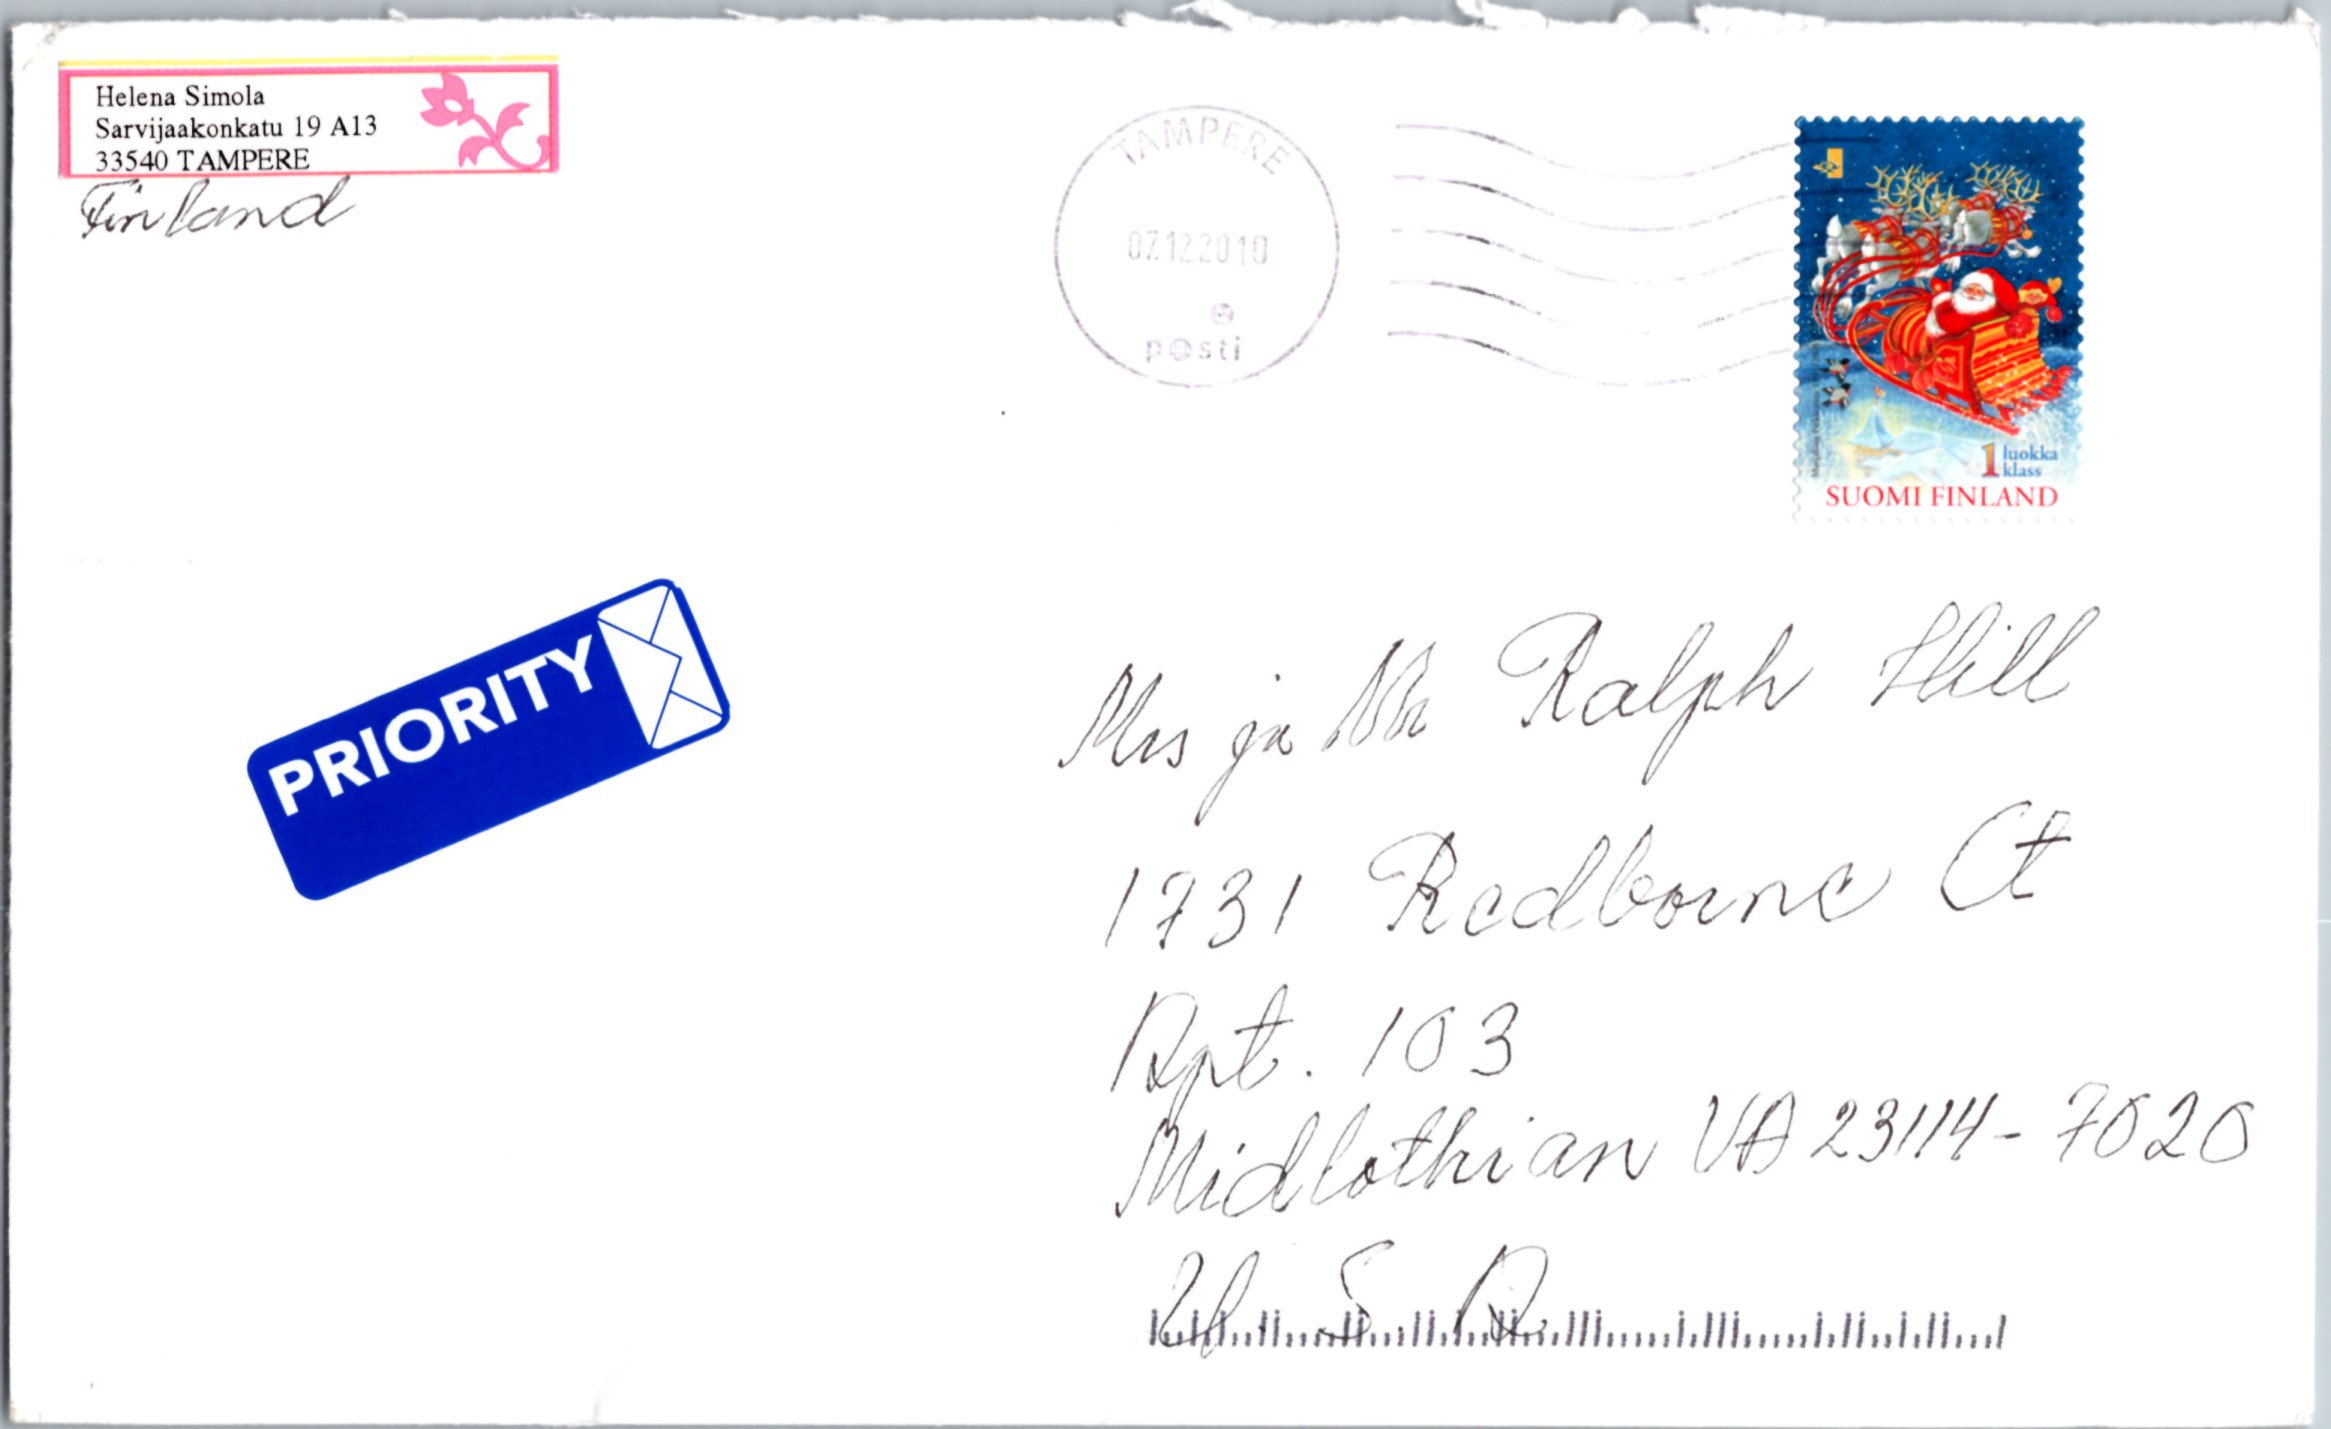 Helena Simola
Sarvijaakonkatu 19 A13
33540 TAMPERE
Finland
TAMPERE
07.12.2010
posti
1 luokka
klass
SUOMI FINLAND
PRIORITY
Mrs ja Mr Ralph Hill
1731 Redborne Ct
Apt. 103
Midlothian VA 23114-7020
U S A